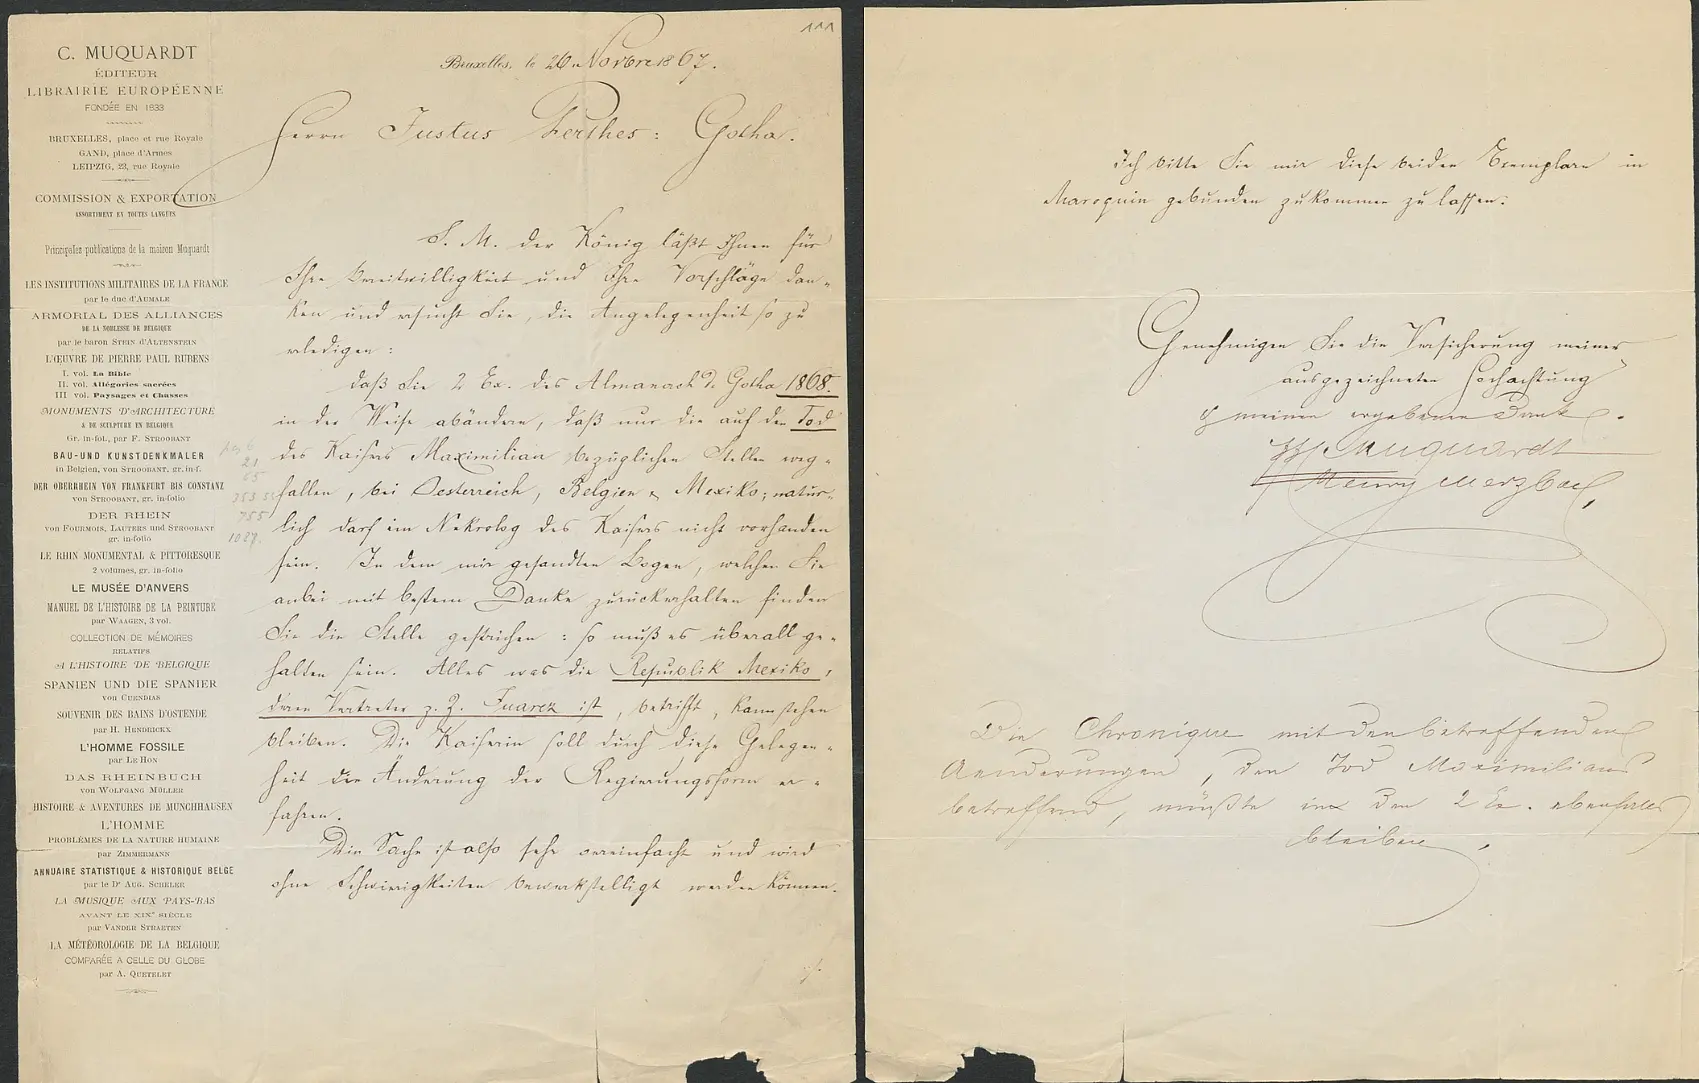 111
C. MUQUARDT
ÉDITEUR
LIBRAIRIE EUROPÉENNE
FONDÉE EN 1833
BRUXELLES, place et rue Royale
GAND, place d'Armes
LEIPZIG, 23, rue Royale
COMMISSION & EXPORTATION
ASSORTIMENT EN TOUTES LANGUES
Principales publications de la maison Muquardt
LES INSTITUTIONS MILITAIRES DE LA FRANCE
par le duc d'AUMALE
ARMORIAL DES ALLIANCES
DE LA NOBLESSE DE BELGIQUE
par le baron STEIN d'ALTENSTEIN
L'ŒUVRE DE PIERRE PAUL RUBENS
I. vol. La Bible
II. vol. Allégories sacrées
III vol. Paysages et Chasses
MONUMENTS D'ARCHITECTURE
& DE SCULPTURE EN BELGIQUE
Gr. in-fol., par F. STROOBANT
BAU-UND KUNSTDENKMALER
in Belgien, von STROOBANT, gr. in-f.
DER OBERRHEIN VON FRANKFURT BIS CONSTANZ
von STROOBANT, gr. in-folio
DER RHEIN
von FOURMOIS, LAUTERS und STROOBANT
gr. in-folio
LE RHIN MONUMENTAL & PITTORESQUE
2 volumes, gr. in-folio
LE MUSÉE D'ANVERS
MANUEL DE L'HISTOIRE DE LA PEINTURE
par WAAGEN, 3 vol.
COLLECTION DE MÉMOIRES
RELATIFS
A L'HISTOIRE DE BELGIQUE
SPANIEN UND DIE SPANIER
von CUENDIAS
SOUVENIR DES BAINS D'OSTENDE
par H. HENDRICKX
L'HOMME FOSSILE
par LE HON
DAS RHEINBUCH
von WOLFGANG MÜLLER
HISTOIRE & AVENTURES DE MUNCHHAUSEN
L'HOMME
PROBLÈMES DE LA NATURE HUMAINE
par ZIMMERMANN
ANNUAIRE STATISTIQUE & HISTORIQUE BELGE
par le Dr AUG. SCHELER
LA MUSIQUE AUX PAYS-BAS
AVANT LE XIXe SIÈCLE
par VANDER STRAETEN
LA MÉTÉOROLOGIE DE LA BELGIQUE
COMPARÉE A CELLE DU GLOBE
par A. QUETELET
Bruxelles, le 26 Novbre 1867.
Herrn Justus Perthes: Gotha.
S. M. der König läßt Ihnen für
Ihre Bereitwilligkeit und Ihre Vorschläge dan-
ken und ersucht Sie, die Angelegenheit so zu
erledigen:
daß Sie 2 Ex. des Almanach de Gotha 1868.
in der Weise abändern, daß nur die auf den Tod
des Kaisers Maximilian bezüglichen Stellen weg-
fallen, bei Oesterreich, Belgien & Mexiko; natür-
lich darf im Nekrolog des Kaisers nicht vorhanden
sein. In dem mir gesandten Bogen, welchen Sie
anbei mit bestem Danke zurückerhalten finden
Sie die Stelle gestrichen: so muß es überall ge-
halten sein. Alles was die Republik Mexiko,
deren Vertreter z. Z. Juarez ist, betrifft, kann stehen
bleiben. Die Kaiserin soll durch diese Gelegen-
heit die Änderung der Regierungsform er-
fahren.
Die Sache ist also sehr vereinfacht und wird
ohne Schwierigkeiten bewerkstelligt werden können.
21
65
755
1027.
Ich bitte Sie mir diese beiden Exemplare in
Maroquin gebunden zukommen zu lassen.
Genehmigen Sie die Versicherung meiner
ausgezeichneten Hochachtung
& meinen ergebenen Dank.
Muquardt
Henry Merzbach,
Die Chronique mit den betreffenden
Aenderungen, den Tod Maximilians
betreffend, müßte in den 2 Ex. ebenfalls
bleiben,